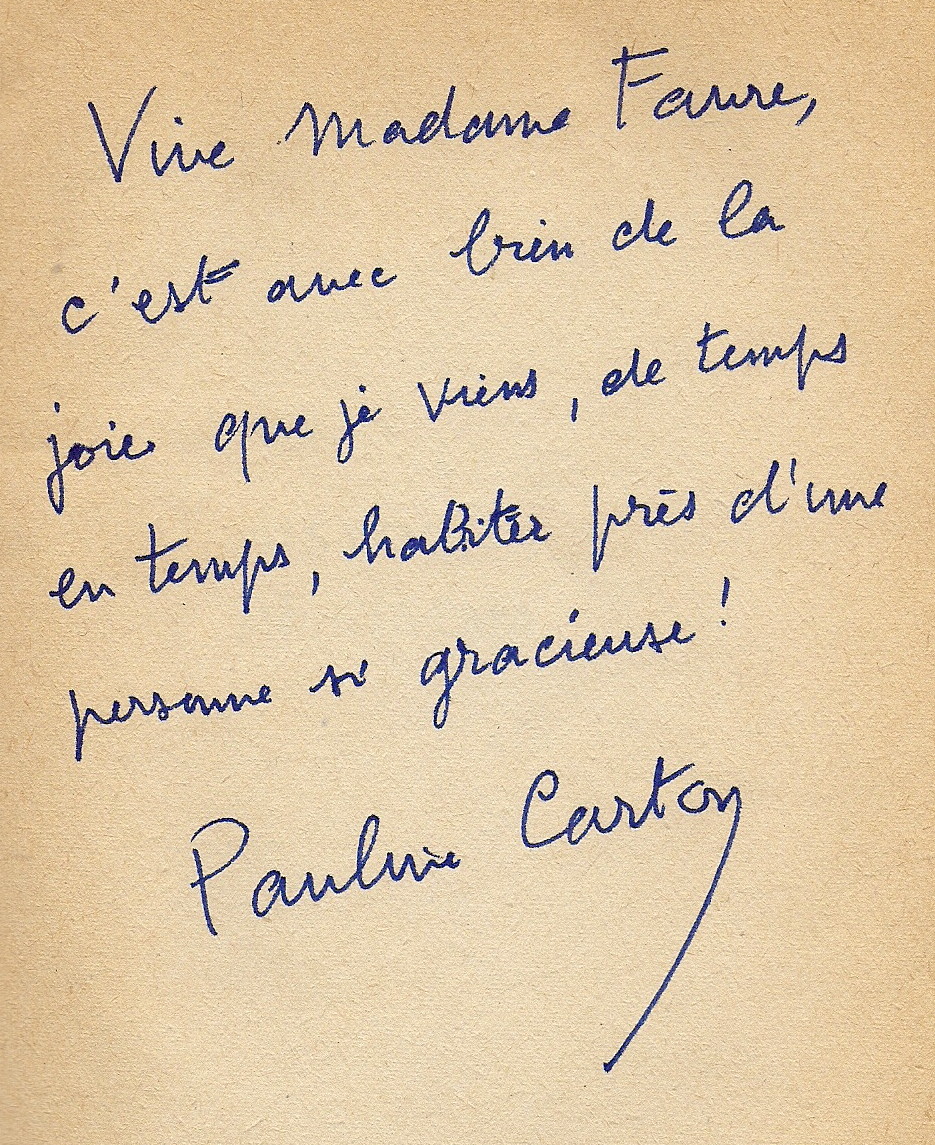 Vive Madame Favre,
c'est avec bien de la
joie que je viens, de temps
en temps, habiter près d'une
personne si gracieuse !
Pauline Carton